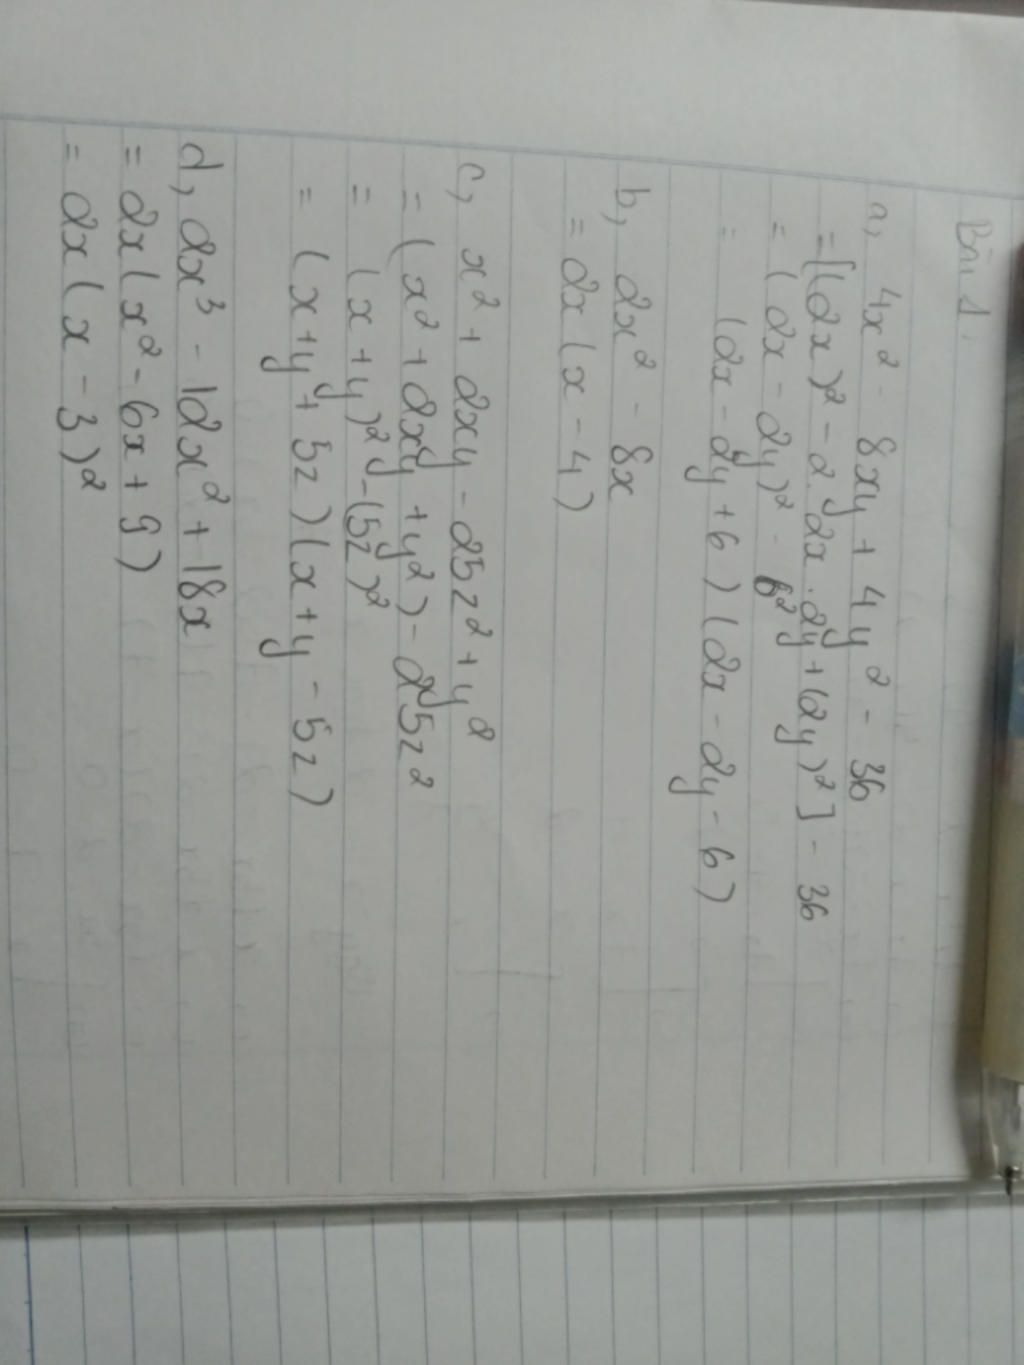 Bài 1.
a, 4x² - 8xy + 4y² - 36
= [(2x)² - 2.2x.2y + (2y)²] - 36
= (2x - 2y)² - 6²
= (2x - 2y + 6) (2x - 2y - 6)
b, 2x² - 8x
= 2x (x - 4)
c, x² + 2xy - 25z² + y²
= (x² + 2xy + y²) - 25z²
= (x + y)² - (5z)²
= (x + y + 5z) (x + y - 5z)
d, 2x³ - 12x² + 18x
= 2x (x² - 6x + 9)
= 2x (x - 3)²